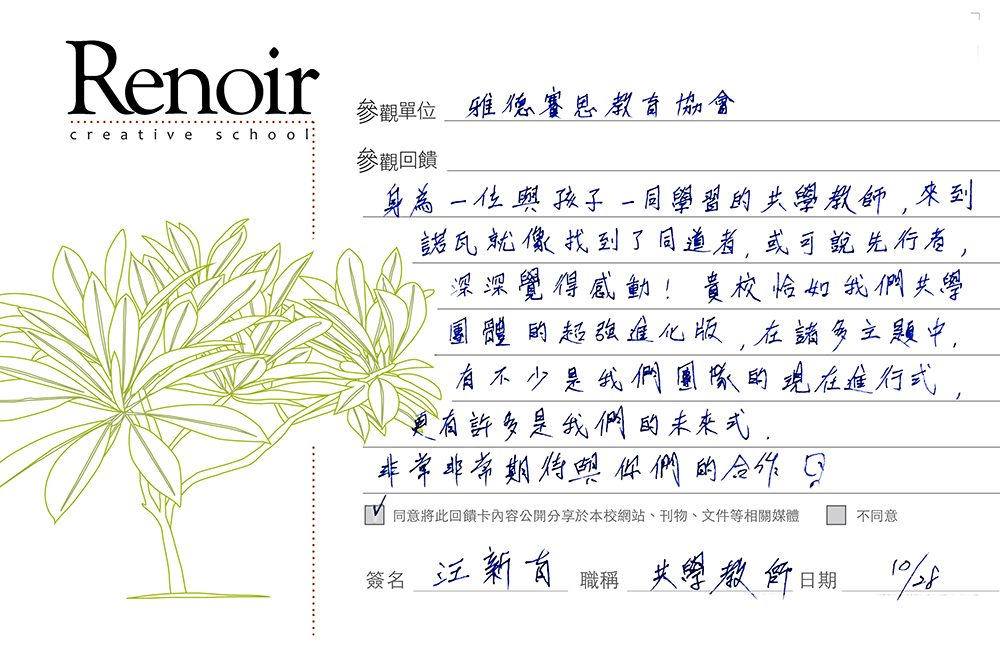 Renoir
creative school
參觀單位 雅德賽思教育協會
參觀回饋
身為一位與孩子一同學習的共學教師,來到
諾瓦就像找到了同道者,或可說先行者,
深深覺得感動!貴校恰如我們共學
團體的超強進化版,在諸多主題中,
有不少是我們團隊的現在進行式,
更有許多是我們的未來式.
非常非常期待與你們的合作
同意將此回饋卡內容公開分享於本校網站、刊物、文件等相關媒體 不同意
簽名 汪新育 職稱 共學教師 日期 10/28